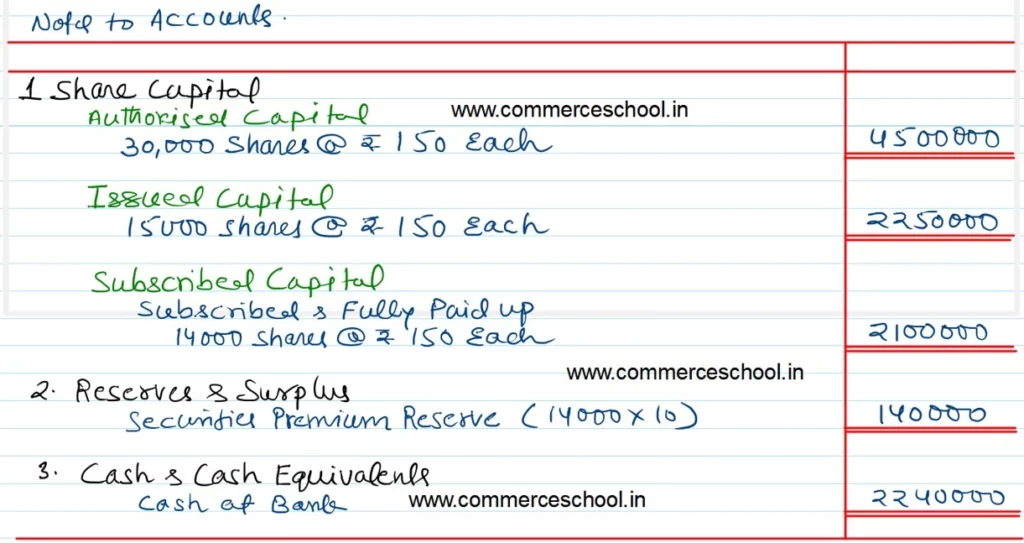 Notes to Accounts.
1 Share Capital
Authorised Capital
www.commerceschool.in
30,000 Shares @ ₹ 150 Each 4500000
Issued Capital
15000 shares @ ₹ 150 Each 2250000
Subscribed Capital
Subscribed & Fully Paid up
14000 shares @ ₹ 150 Each 2100000
www.commerceschool.in
2. Reserves & Surplus
Securities Premium Reserve (14000 x 10) 140000
3. Cash & Cash Equivalents
Cash at Bank www.commerceschool.in 2240000